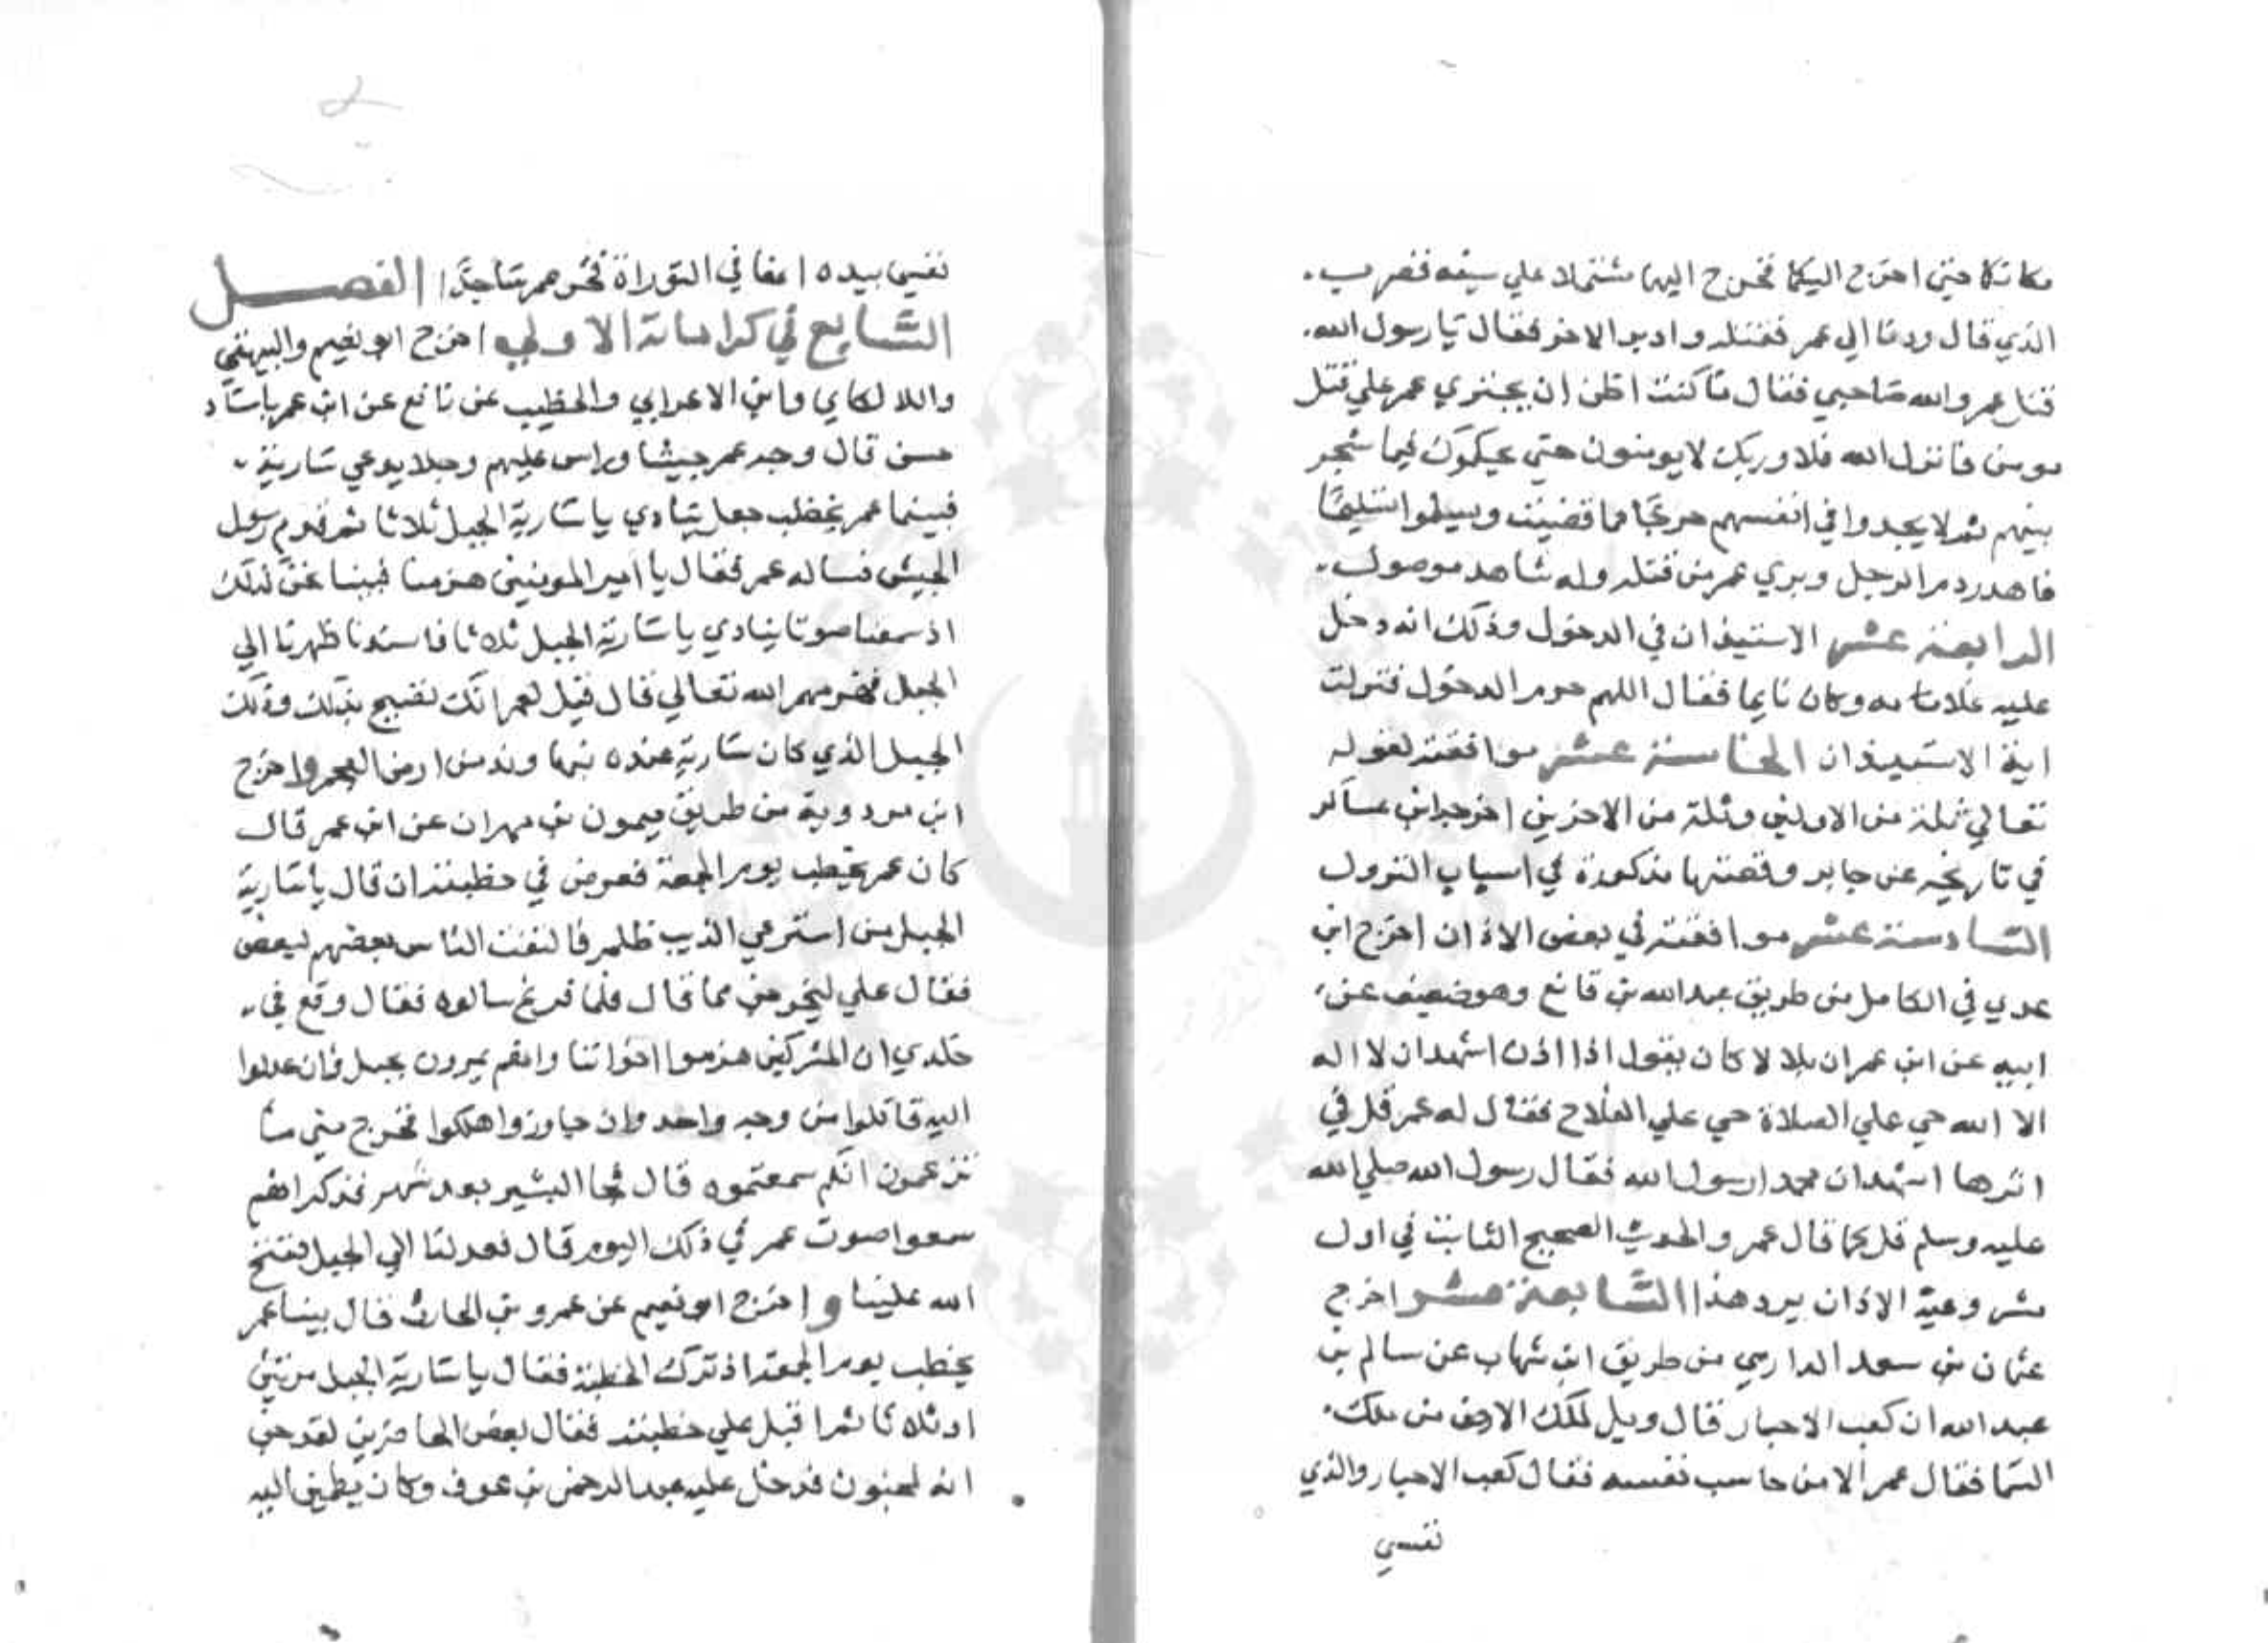 مكانكما حتي اخرج اليكما فخرج اليهما مشتملا علي سيفه فضرب
الذي قال ردنا الي عمر فقتله وادبر الاخر فقال يا رسول الله
قتل عمر والله صاحبي فقال ما كنت اظن ان يجتري عمر علي قتل
مومن فانزل الله فلا وربك لا يومنون حتي يحكموك فيما شجر
بينهم ثم لا يجدوا في انفسهم حرجا مما قضيت ويسلموا تسليما
فاهدر دم الرجل وبري عمر من قتله وله شاهد موصول
الرابعة عشر الاستيذان في الدخول وذلك انه دخل
عليه غلامه وكان نايما فقال اللهم حرم الدخول فنزلت
اية الاستيذان الخامسة عشر موافقته لقوله
تعالي ثلة من الاولين وثلة من الاخرين اخرجه ابن عساكر
في تاريخه عن جابر وقصتها مذكورة في اسباب النزول
السادسة عشر موافقته في بعض الاذان اخرج ابن
عدي في الكامل من طريق عبد الله بن قانع وهو ضعيف عن
ابيه عن ابن عمر ان بلالا كان يقول اذا اذن اشهد ان لا اله
الا الله حي علي الصلاة حي علي الفلاح فقال له عمر قل في
اثرها اشهد ان محمدا رسول الله فقال رسول الله صلي الله
عليه وسلم قل كما قال عمر والحديث الصحيح الثابت في اول
مشروعية الاذان يرد هذا السابعة عشر اخرج
عثمان بن سعد الدارمي من طريق ابن شهاب عن سالم بن
عبد الله ان كعب الاحبار قال ويل لملك الارض من ملك
السما فقال عمر الا من حاسب نفسه فقال كعب الاحبار والذي
نفسي
نفسي بيده انها في التوراة فخر عمر ساجدا الفصل
السابع في كراماته الاولي اخرج ابو نعيم والبيهقي
واللالكاي وابن الاعرابي والخطيب عن نافع عن ابن عمر باسناد
حسن قال وجه عمر جيشا وراس عليهم رجلا يدعي سارية
فبينما عمر يخطب جعل ينادي يا سارية الجبل ثلاثا ثم قدم رسول
الجيش فساله عمر فقال يا امير المومنين هزمنا فبينا نحن كذلك
اذ سمعنا صوتا ينادي يا سارية الجبل ثلاثا فاسندنا ظهرنا الي
الجبل فهزمهم الله تعالي قال قيل لعمر انك تصيح بذلك وذلك
الجبل الذي كان سارية عنده بنهاوند من ارض العجم واخرج
ابن مردوية من طريق ميمون بن مهران عن ابن عمر قال
كان عمر يخطب يوم الجمعة فعرض في خطبته ان قال يا سارية
الجبل من استرعي الذيب ظلم فالتفت الناس بعضهم لبعض
فقال علي ليخرجن مما قال فلما فرغ سالوه فقال وقع في
خلدي ان المشركين هزموا اخواننا وانهم يمرون بجبل فان عدلوا
اليه قاتلوا من وجه واحد وان جاوزوا هلكوا فخرج مني ما
تزعمون انكم سمعتموه قال فجا البشير بعد شهر فذكر انهم
سمعوا صوت عمر في ذلك اليوم قال فعدلنا الي الجبل ففتح
الله علينا واخرج ابو نعيم عن عمرو بن الحارث قال بينما عمر
يخطب يوم الجمعة اذ ترك الخطبة فقال يا سارية الجبل مرتين
او ثلاثا ثم اقبل علي خطبته فقال بعض الحاضرين لقد جن
انه لمجنون فدخل عليه عبد الرحمن بن عوف وكان يطمين اليه